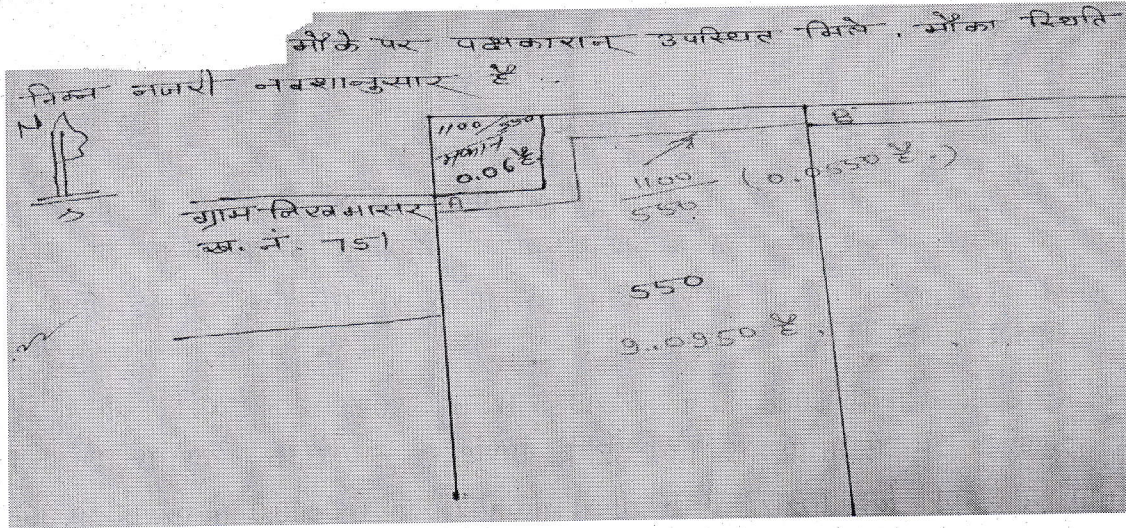 मौके पर पक्षकारान उपस्थित मिले, मौका स्थिति
निम्न नजरी नक्शानुसार है
N
S
1100/550
मकान
0.06 है.
A
B
1100/550 (0.0550 है.)
ग्राम लिखमासर
ख. नं. 751
550
9.0950 है.